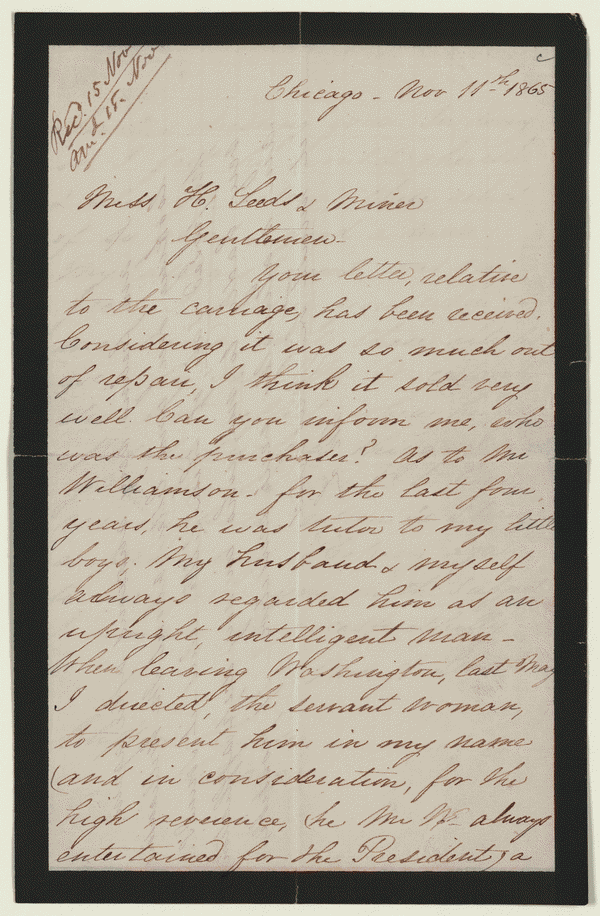 Recd. 15 Nov
Ans. 15. Nov
Chicago - Nov 11th 1865
Mess H. Leeds & Miner
Gentlemen -
Your letter, relative
to the carriage, has been received.
Considering it was so much out
of repair, I think it sold very
well. Can you inform me, who
was the purchaser? As to Mr
Williamson - for the last four
years, he was tutor to my little
boys. My husband & myself
always regarded him as an
upright, intelligent man -
When leaving Washington, last May
I directed, the servant woman,
to present him in my name
(and in consideration, for the
high reverence, he Mr W- always
entertained for the President) a